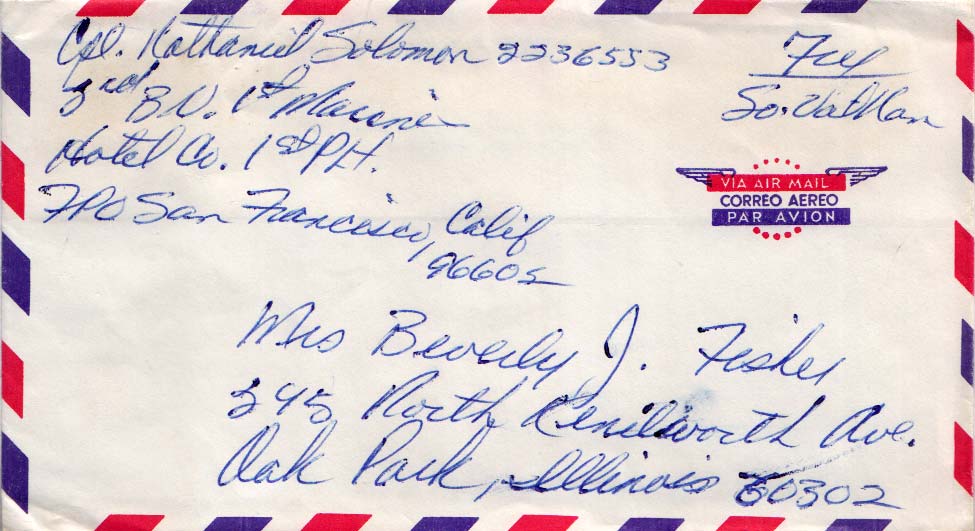 Cpl. Nathaniel Solomon 2236553
3rd BN. 1st Marines
Hotel Co. 1st Plt.
FPO San Francisco, Calif
96602
Free
So. Viet Nam
VIA AIR MAIL
CORREO AEREO
PAR AVION
Mrs Beverly J. Fisher
North Kenilworth Ave.
Oak Park, Illinois 60302